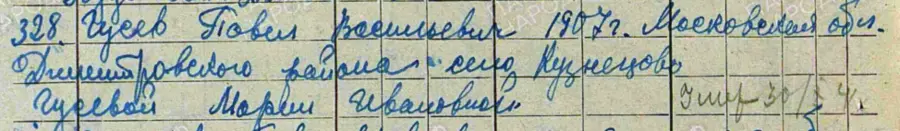 328. Гусев Павел Васильевич 1907г. Московская обл.
Дмитровского района село Кузнецово
Гусевой Марии Ивановной
Умер 30/